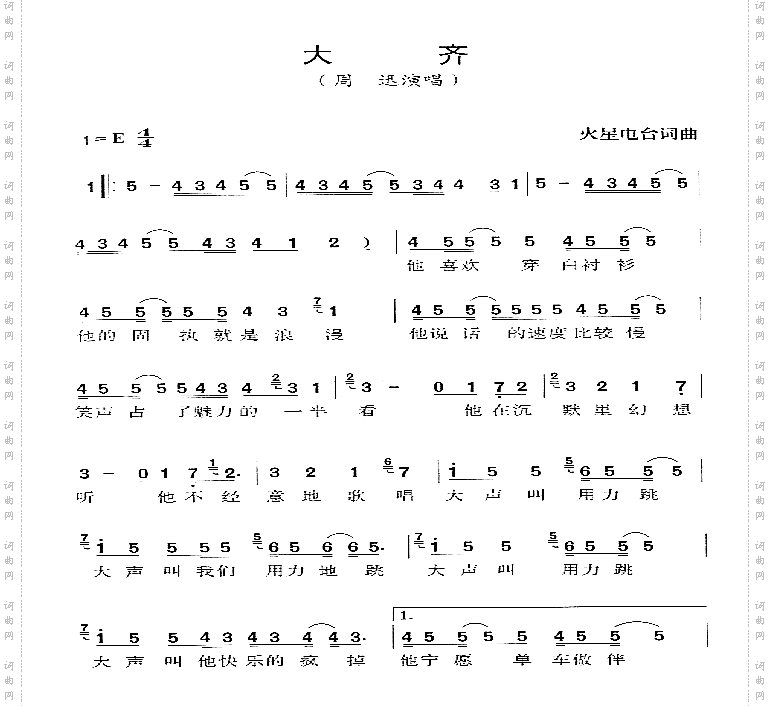 大 齐
（周 迅演唱）
1=E 4/4
火星电台词曲
1 ‖: 5 - 4 3 4 5 5 | 4 3 4 5 5 5 3 4 4 3 1 | 5 - 4 3 4 5 5
4 3 4 5 5 4 3 4 1 2 ) | 4 5 5 5 5 4 5 5 5
他 喜欢 穿 白衬 衫
4 5 5 5 5 5 4 3 7 1 | 4 5 5 5 5 5 5 4 5 5 5
他的 固 执 就是 浪 漫 他说 话 的速度比较 慢
4 5 5 5 5 4 3 4 2 3 1 | 2 3 - 0 1 7 2 | 2 3 2 1 7
笑声 占 了魅力的 一半 看 他在沉 默里幻想
3 - 0 1 7 1 2· | 3 2 1 6 7 | 1 5 5 5 6 5 5 5
听 他不 经 意地歌唱 大声叫 用力跳
7 1 5 5 5 5 5 6 5 6 6 5· | 7 1 5 5 5 6 5 5 5
大声叫我们 用力地 跳 大声叫 用力跳
1.
7 1 5 5 5 4 3 4 3 4 4 3· | 4 5 5 5 5 4 5 5 5
大声叫他快乐的疯 掉 他宁愿 单 车做伴
词曲网